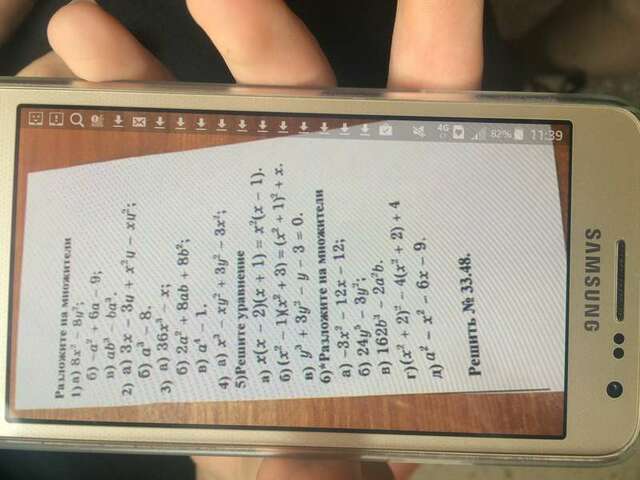 Разложите на множители
1) а) 8x² − 8y²;
б) −a² + 6a − 9;
в) ab³ − ba³.
2) а) 3x − 3y + x²y − xy²;
б) a³ − 8.
3) а) 36x³ − x;
б) 2a² + 8ab + 8b²;
в) a⁴ − 1.
4) а) x³ − xy² + 3y² − 3x²;
5)Решите уравнение
а) x(x − 2)(x + 1) = x²(x − 1).
б) (x² − 1)(x² + 3) = (x² + 1)² + x.
в) y³ + 3y² − y − 3 = 0.
6)*Разложите на множители
а) −3x² − 12x − 12;
б) 24y⁵ − 3y²;
в) 162b³ − 2a²b.
г)(x² + 2)² − 4(x² + 2) + 4
д) a² − x² − 6x − 9.
Решить № 33.48.
4G
82%
11:39
SAMSUNG